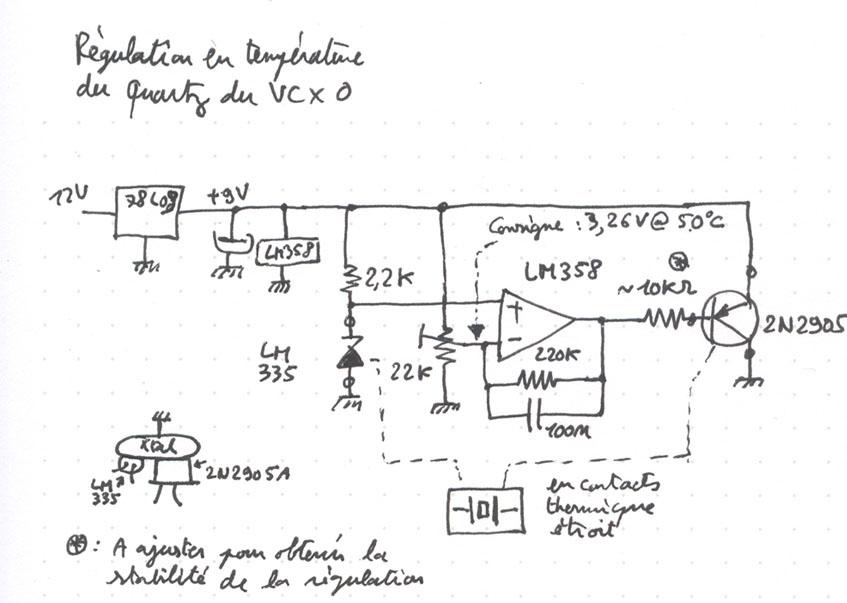 Régulation en température
du Quartz du VCXO
12V
78L09
+9V
LM358
2,2K
Consigne : 3,26V @ 50°C
LM358
~10KΩ
2N2905
LM
335
22K
220K
100n
Xtal
LM
335
2N2905A
en contacts
thermique
étroit
⊛ : A ajuster pour obtenir la
stabilité de la régulation